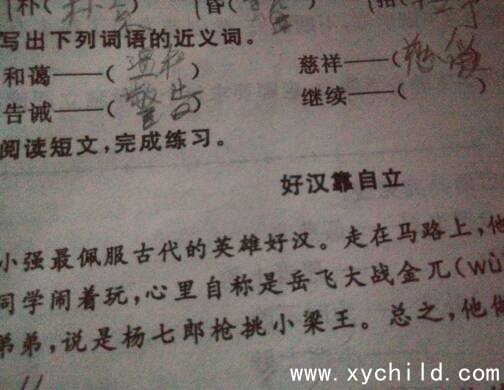 朴( 朴
昏(
写出下列词语的近义词。
和蔼——( 温和 ) 慈祥——( 慈爱
告诫——( 警告 ) 继续——(
阅读短文,完成练习。
好汉靠自立
小强最佩服古代的英雄好汉。走在马路上,他
同学闹着玩,心里自称是岳飞大战金兀(wù
弟弟,说是杨七郎枪挑小梁王。总之,他
www.xychild.com